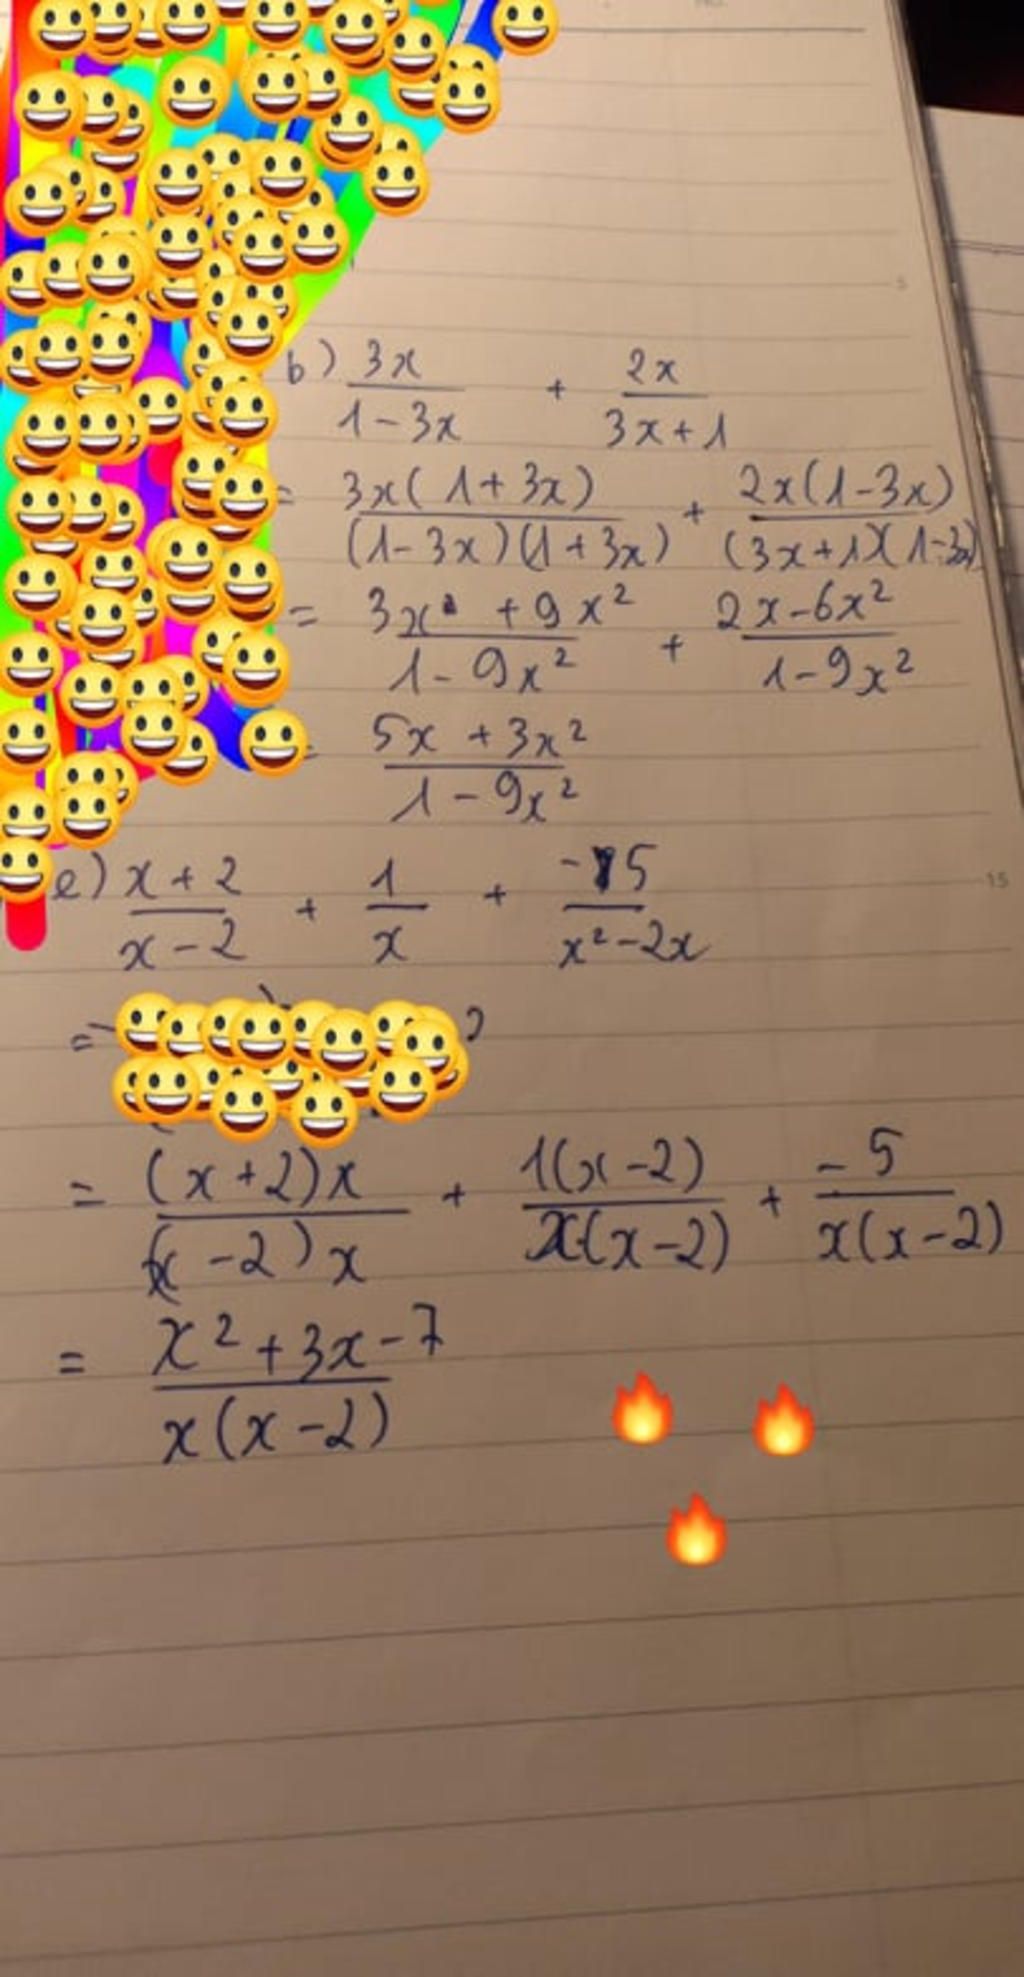 b) 3x/(1-3x) + 2x/(3x+1)
= 3x(1+3x)/((1-3x)(1+3x)) + 2x(1-3x)/((3x+1)(1-3x))
= (3x + 9x²)/(1-9x²) + (2x-6x²)/(1-9x²)
= (5x + 3x²)/(1-9x²)
e) (x+2)/(x-2) + 1/x + -5/(x²-2x)
=
= (x+2)x/((x-2)x) + 1(x-2)/(x(x-2)) + -5/(x(x-2))
= (x²+3x-7)/(x(x-2))
5
15